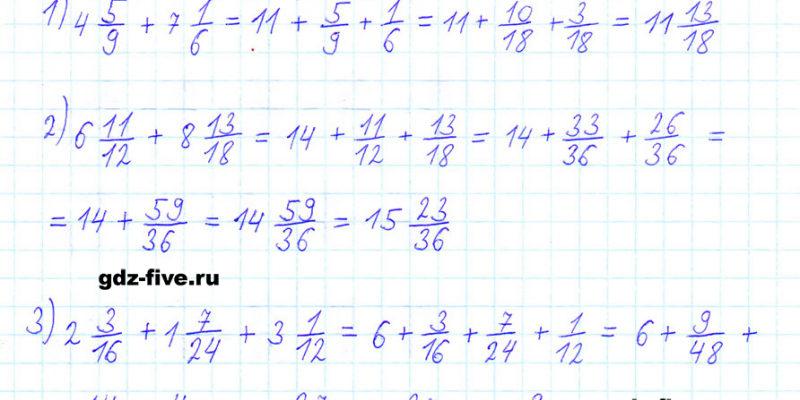 1) 4 5/9 + 7 1/6 = 11 + 5/9 + 1/6 = 11 + 10/18 + 3/18 = 11 13/18
2) 6 11/12 + 8 13/18 = 14 + 11/12 + 13/18 = 14 + 33/36 + 26/36 =
= 14 + 59/36 = 14 59/36 = 15 23/36
gdz-five.ru
3) 2 3/16 + 1 7/24 + 3 1/12 = 6 + 3/16 + 7/24 + 1/12 = 6 + 9/48 +